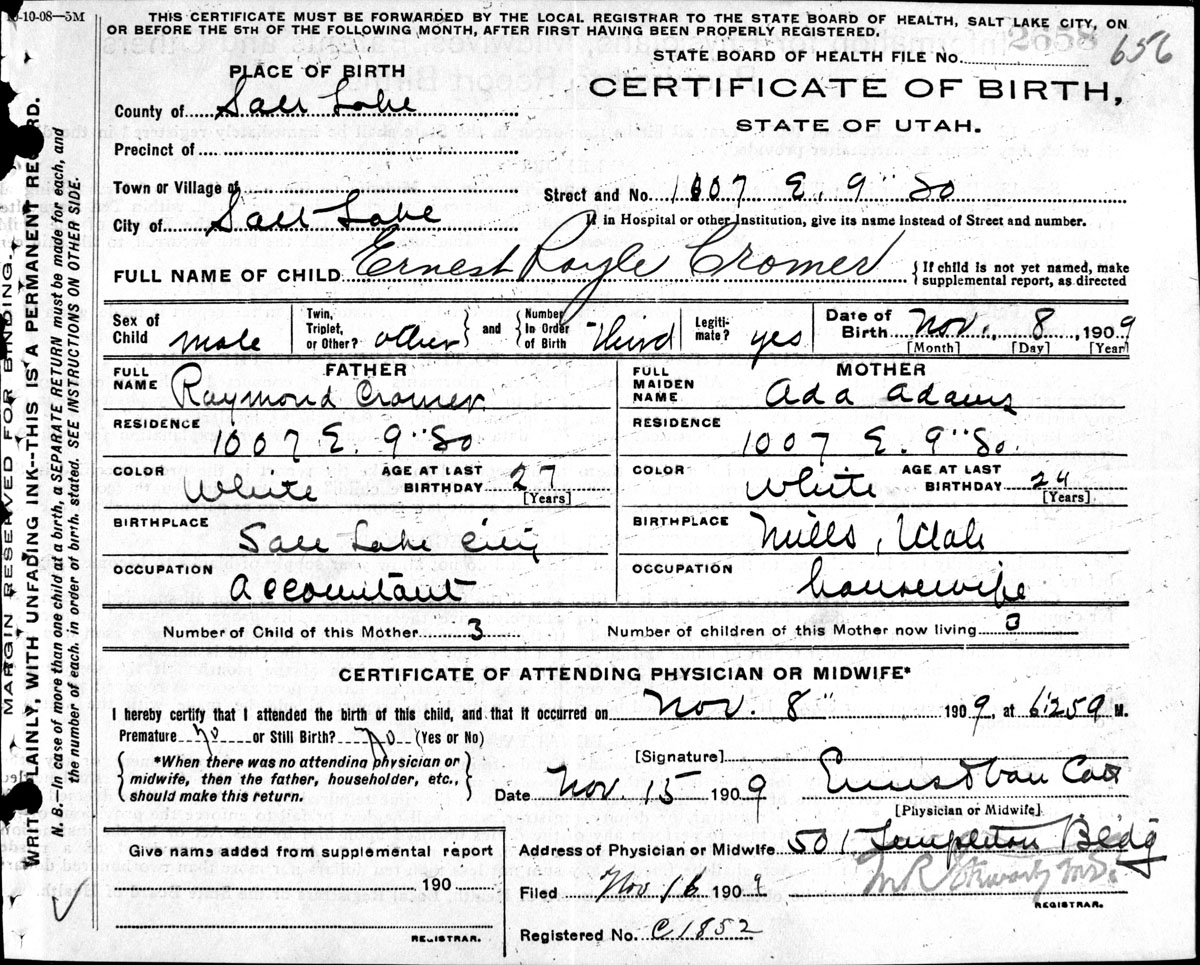 10-10-08—5M
THIS CERTIFICATE MUST BE FORWARDED BY THE LOCAL REGISTRAR TO THE STATE BOARD OF HEALTH, SALT LAKE CITY, ON
OR BEFORE THE 5TH OF THE FOLLOWING MONTH, AFTER FIRST HAVING BEEN PROPERLY REGISTERED.
2658
STATE BOARD OF HEALTH FILE No. 656
PLACE OF BIRTH
CERTIFICATE OF BIRTH,
STATE OF UTAH.
County of Salt Lake
Precinct of
Town or Village of
Street and No. 1007 E. 9" So
City of Salt Lake
If in Hospital or other Institution, give its name instead of Street and number.
FULL NAME OF CHILD Ernest Royle Cromer
{If child is not yet named, make supplemental report, as directed
Sex of Child male
Twin, Triplet, or Other? other
and
Number In Order of Birth Third
Legiti-mate? yes
Date of Birth Nov. 8, 1909
[Month] [Day] [Year]
FATHER
FULL NAME Raymond Cromer
RESIDENCE 1007 E. 9" So
COLOR White
AGE AT LAST BIRTHDAY 27 [Years]
BIRTHPLACE Salt Lake City
OCCUPATION Accountant
MOTHER
FULL MAIDEN NAME Ada Adams
RESIDENCE 1007 E. 9" So.
COLOR White
AGE AT LAST BIRTHDAY 24 [Years]
BIRTHPLACE Mills, Utah
OCCUPATION housewife
Number of Child of this Mother 3
Number of children of this Mother now living 3
CERTIFICATE OF ATTENDING PHYSICIAN OR MIDWIFE*
I hereby certify that I attended the birth of this child, and that it occurred on Nov. 8" 1909, at M.
Premature? no or Still Birth? no (Yes or No)
{*When there was no attending physician or midwife, then the father, householder, etc., should make this return.}
[Signature] Ernest Van Cott
Date Nov 15 1909
[Physician or Midwife]
Give names added from supplemental report
190
REGISTRAR.
Address of Physician or Midwife 501 Templeton Bldg
Filed Nov 16 1909
REGISTRAR.
Registered No. C1852
MARGIN RESERVED FOR BINDING.
WRITE PLAINLY, WITH UNFADING INK--THIS IS A PERMANENT RECORD.
N. B.—In case of more than one child at a birth, a SEPARATE RETURN must be made for each, and
the number of each, in order of birth, stated. SEE INSTRUCTIONS ON OTHER SIDE.